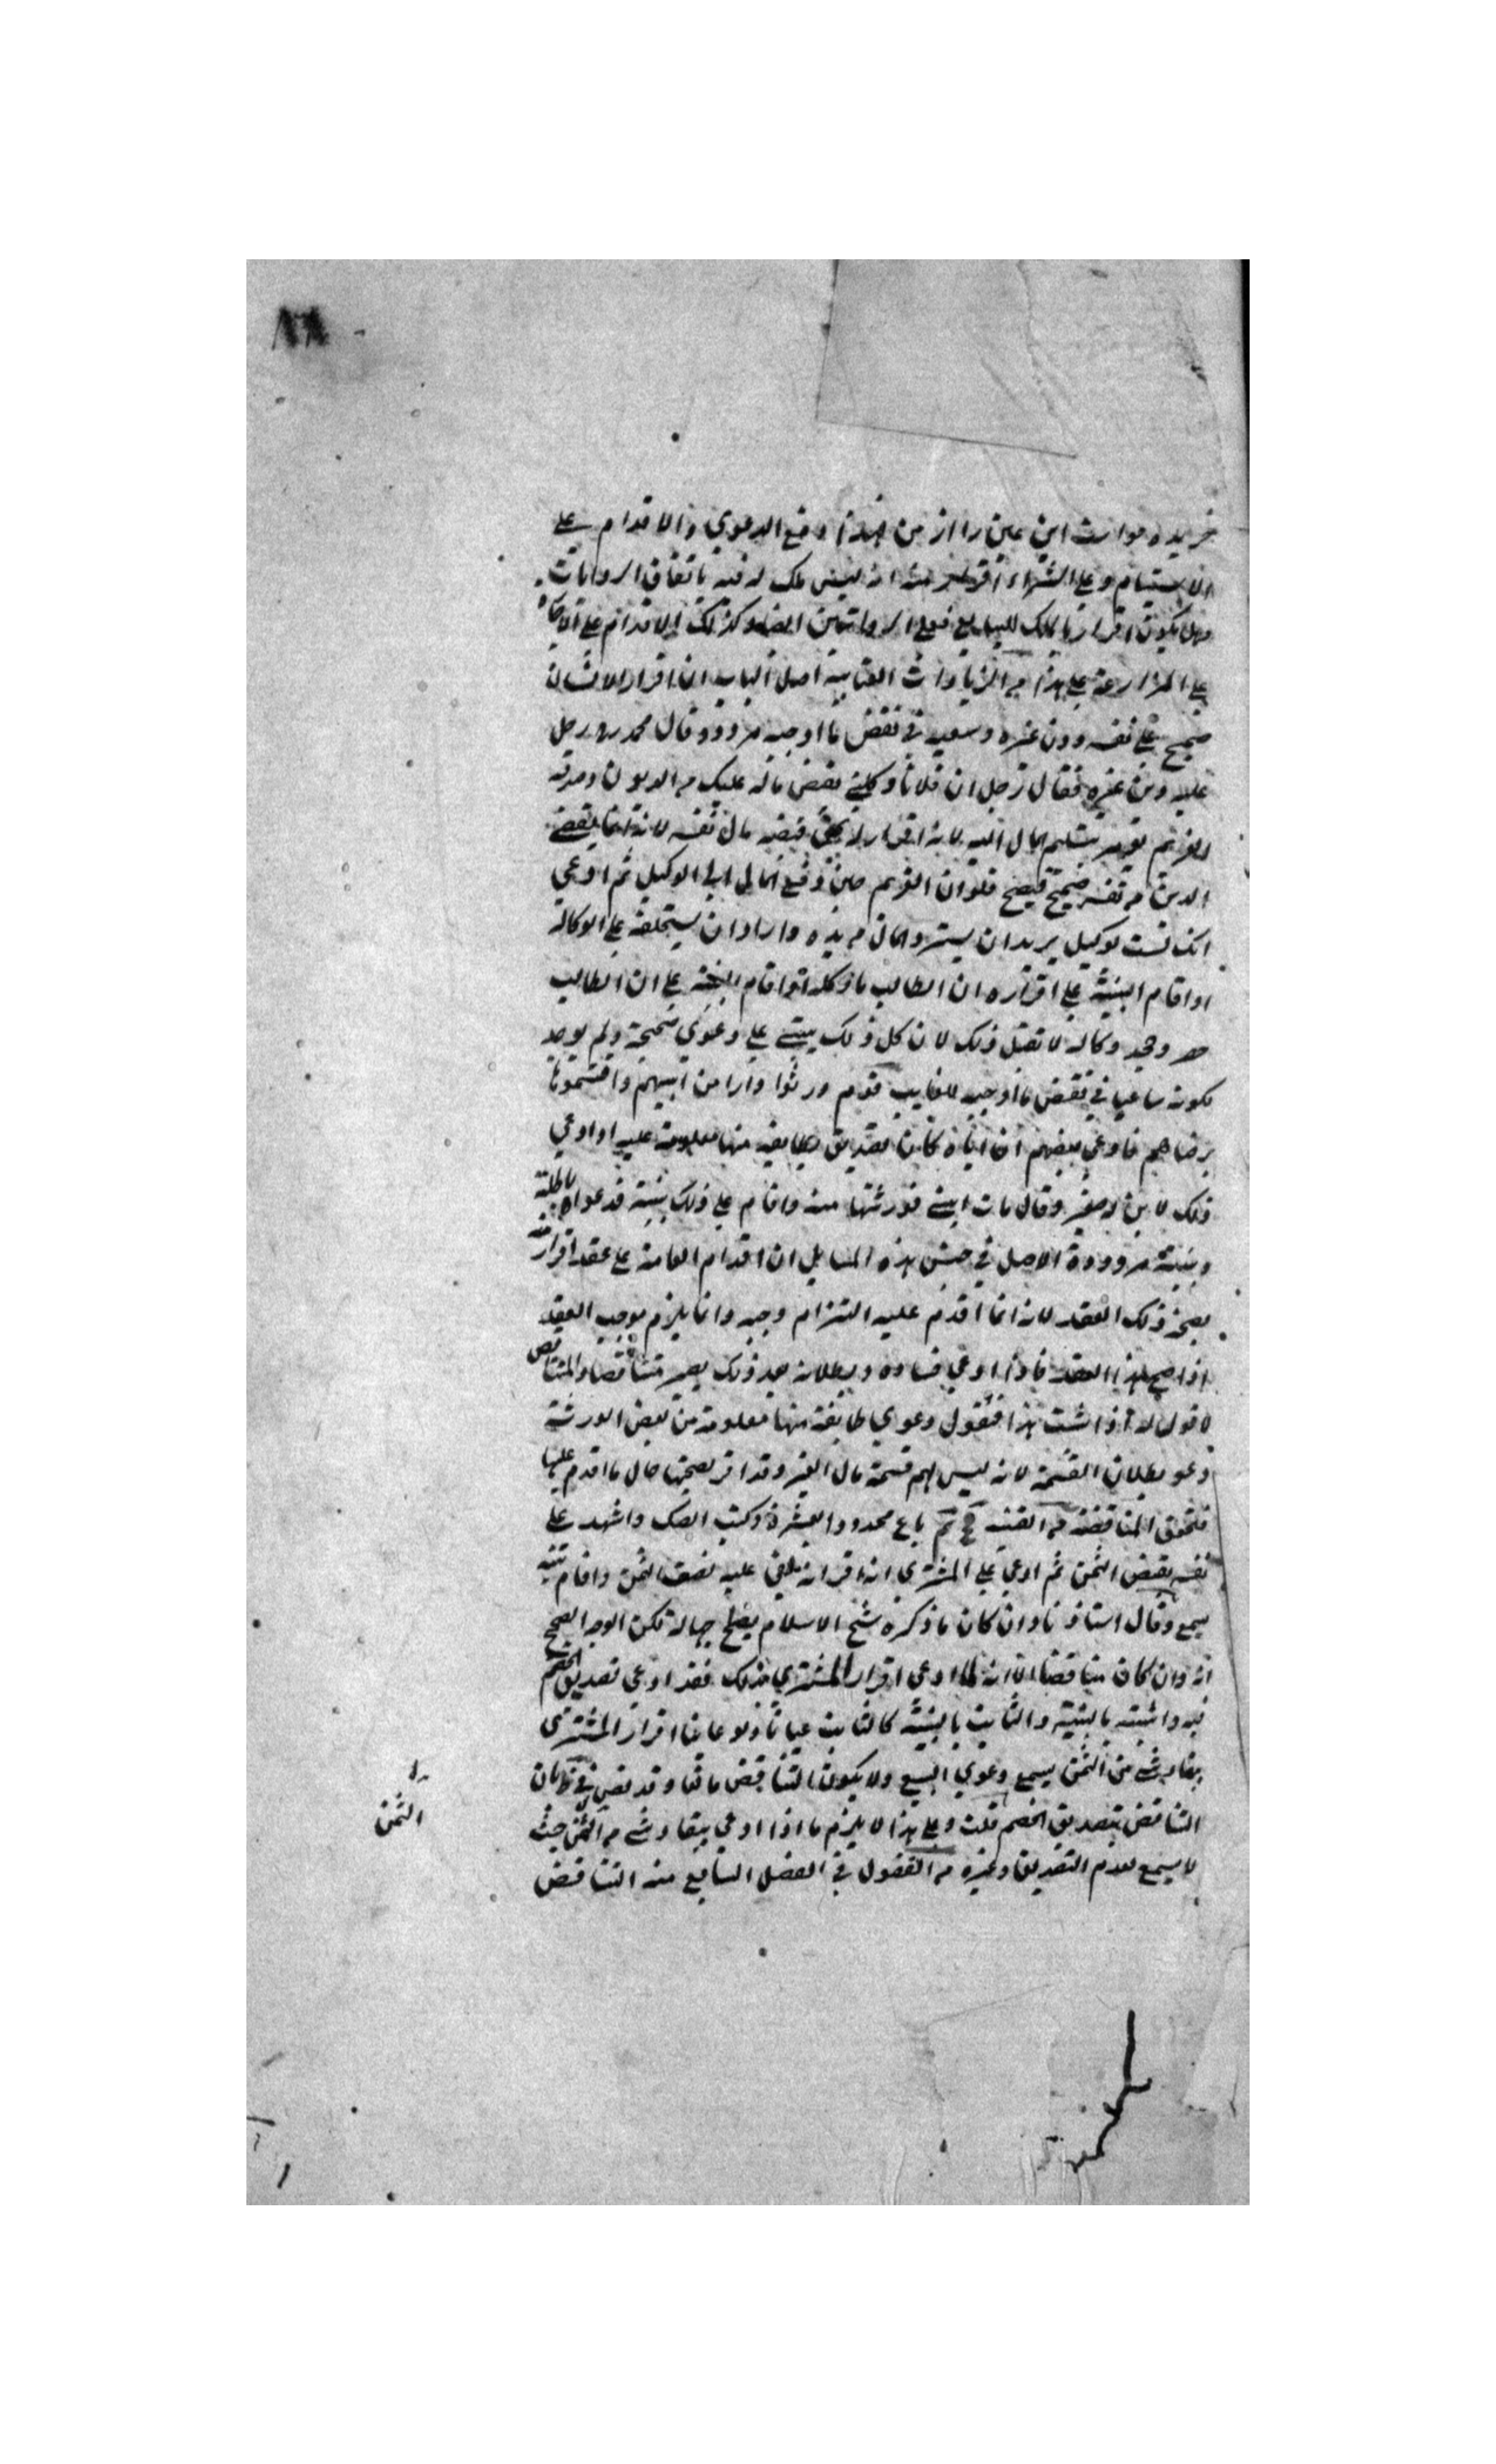 ٨٨
خريده خواست اين عين را از من فهذا دفع الدعوي والاقدام علي
الاستيام وعلي الشراء اقرار منه انه ليس ملك له فيه باتفاق الروايات
وهل يكون اقرارا بالملك للبايع فعلي الروايتين ايضا وكذلك الاقدام علي
علي المزارعة علي هذا من الزيادات العتابية اصل الباب ان اقرار الانسان
صحيح علي نفسه دون غيره وسعيه في نقض ما اوجبه مردود قال محمد رح رجل
عليه دين غيره فقال رجل ان فلانا وكلني بقبض ماله عليك من الديون وصدقه
الغريم يؤمر بتسليم المال اليه لانه اقرار له بحق قبضه مال نفسه لانه انما يقضي
الدين من نفسه صحيح فيصح فلو ان الغريم حين دفع المال الي الوكيل ثم ادعي
انك لست بوكيل يريد ان يسترد المال من يده واراد ان يستحلفه علي الوكالة
او اقام البينة علي اقراره ان الطالب ما وكله او اقام البينة علي ان الطالب
حضر وجحد وكالته لا تقبل ذلك لان كل ذلك يبتني علي دعوي صحيحة ولم يوجد
لكونه ساعيا في نقض ما اوجبه للغايب قوم ورثوا دارا من ابيهم واقتسموها
برضاهم فادعي بعضهم ان اباه كان تصدق بطايفة منها معلومة عليه او ادعي
ذلك لابن له صغير وقال مات ابني فورثتها منه واقام علي ذلك بينة فدعواه باطلة
وبينته مردودة الاصل في جنس هذه المسايل ان اقدام العاقد علي عقد اقرار منه
بصحة ذلك العقد لانه انما اقدم عليه التزام وجبه وانما يلزم موجب العقد
اذا صح هذا العقد فاذا ادعي فساده وبطلانه بعد ذلك يصير متناقضا والمتناقض
لا قول له اذا ثبت هذا فنقول دعوي طايفة منها معلومة من بعض الورثة
دعو بطلان القسمة لانه ليس لهم قسمة مال الغير وقد اقر بصحتها حال ما اقدم عليها
فتحقق المناقضة من القنية باع محدودا بعشرة وكتب الصك واشهد علي
نفسه بقبض الثمن ثم ادعي علي المشتري انه اقر انه بقي عليه نصف الثمن واقام بينة
يسمع وقال استاذنا وان كان ما ذكره شيخ الاسلام يصلح جهالة لكن الوجه الصحيح
انه وان كان متناقضا الا انه لما ادعي اقرار المشتري بذلك فقد ادعي تصديق الخصم
فيه واثبته بالبينة والثابت بالبينة كالثابت عيانا ولو عاينا اقرار المشتري
ببقاء شي من الثمن يسمع دعوي البيع ولا يكون التناقض مانعا وقد نص في بطلان
التناقض بتصديق الخصم قلت وعلي هذا لا يلزم ما اذا ادعي ببقاء شي من الثمن حيث
لا يسمع لعدم التصديق وغيره من الفصول في الفصل السابع منه التناقض
الثمن